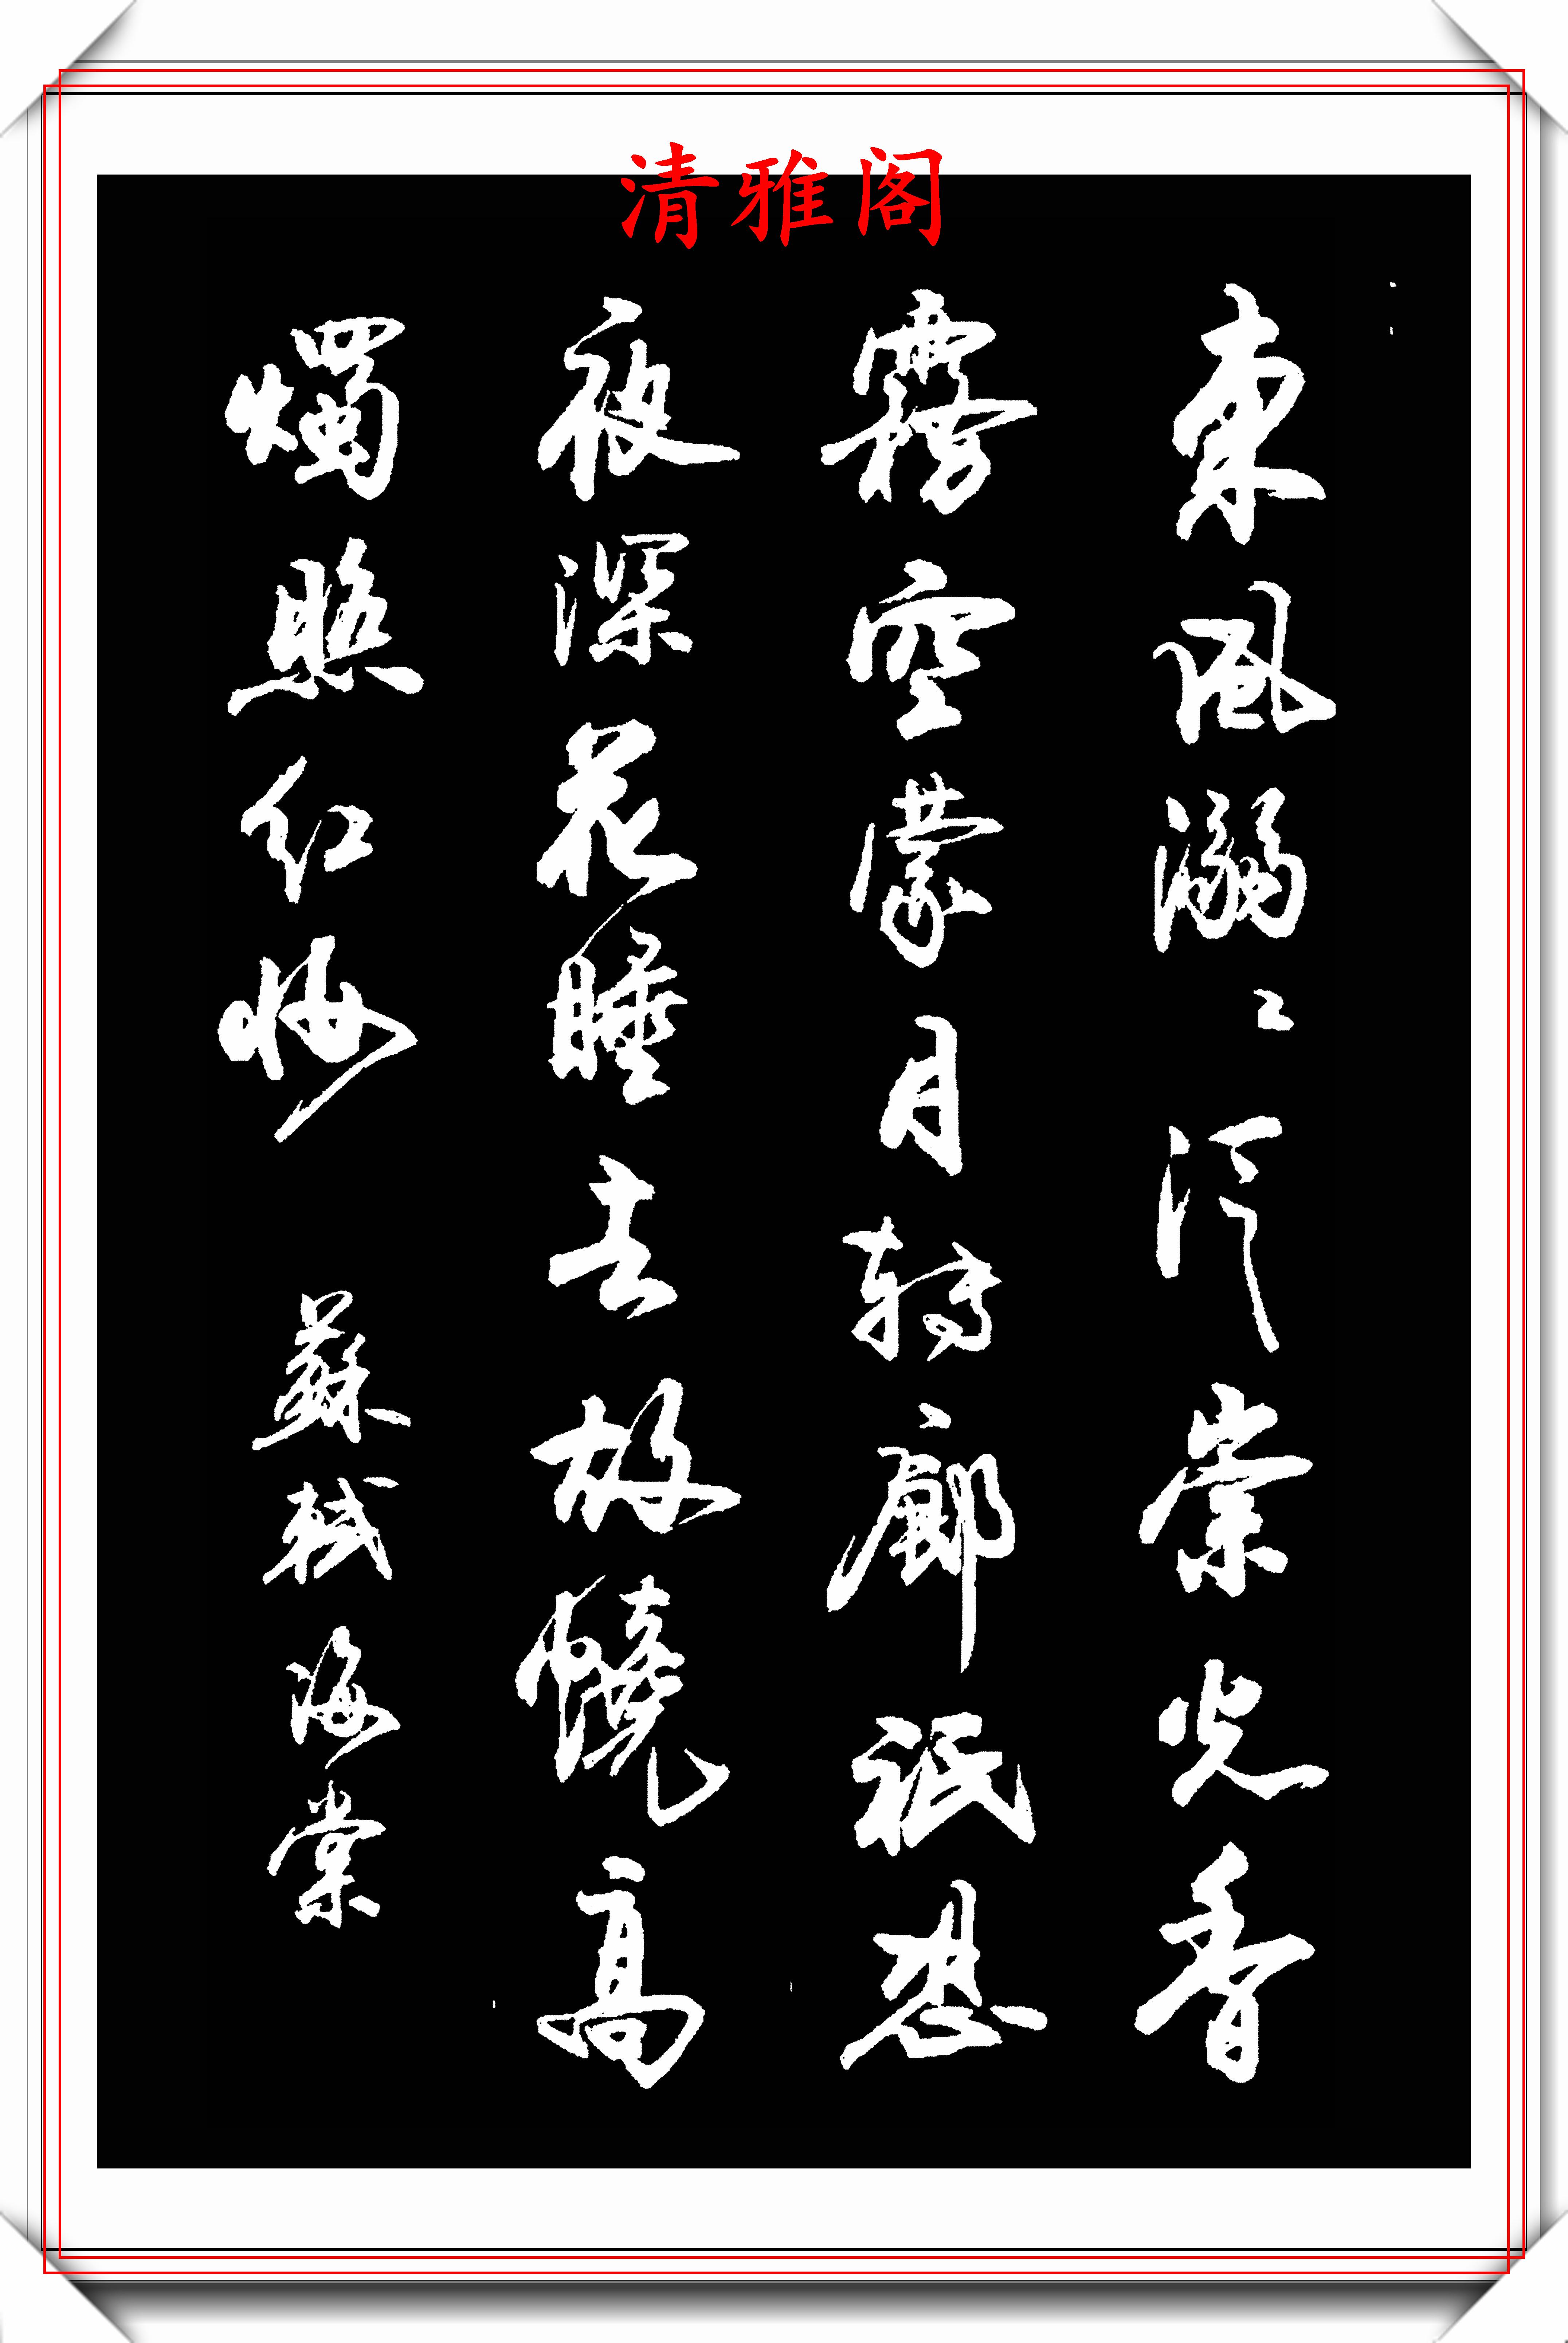 清雅阁
東風溺〻泛崇光香
霧空濛月轉廊祗恐
夜深花睡去故燒高
燭照紅妆 蘇軾海棠